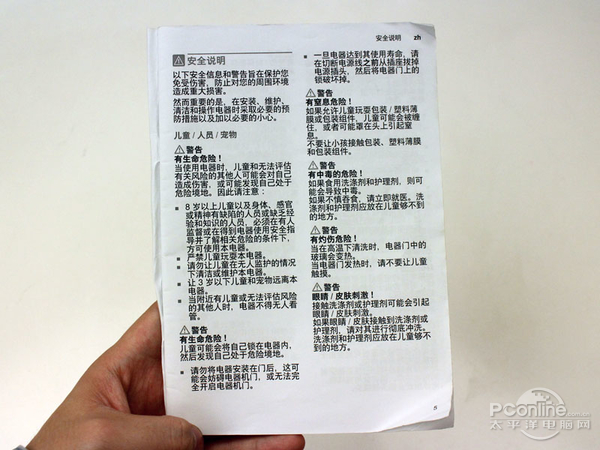 安全说明 zh
安全说明
以下安全信息和警告旨在保护您
免受伤害，防止对您的周围环境
造成重大损害。
然而重要的是，在安装、维护、
清洁和操作电器时采取必要的预
防措施以及加以必要的小心。
儿童 / 人员 / 宠物
警告
有生命危险！
当使用电器时，儿童和无法评估
有关风险的其他人可能会对自己
造成伤害，或可能发现自己处于
危险境地。因此请注意：
▪ 8 岁以上儿童以及身体、感官
或精神有缺陷的人员或缺乏经
验和知识的人员，必须在有人
监督或在得到电器使用安全指
导并了解相关危险的条件下，
方可使用本电器。
▪ 严禁儿童玩耍本电器。
▪ 请勿让儿童在无人监护的情况
下清洁或维护本电器。
▪ 让 3 岁以下儿童和宠物远离本
电器。
▪ 当附近有儿童或无法评估风险
的其他人时，电器不得无人看
管。
警告
有生命危险！
儿童可能会将自己锁在电器内，
然后发现自己处于危险境地。
▪ 请勿将电器安装在门后，这可
能会妨碍电器机门，或无法完
全开启电器机门。
▪ 一旦电器达到其使用寿命，请
在切断电源线之前从插座拔掉
电源插头，然后将电器门上的
锁破坏掉。
警告
有窒息危险！
如果允许儿童玩耍包装 / 塑料薄
膜或包装组件，儿童可能会被缠
住，或者可能罩在头上引起窒
息。
不要让小孩接触包装、塑料薄膜
和包装组件。
警告
有中毒的危险！
如果食用洗涤剂和护理剂，则可
能会导致中毒。
如果不慎吞食，请立即就医。洗
涤剂和护理剂应放在儿童够不到
的地方。
警告
有灼伤危险！
当在高温下清洗时，电器门中的
玻璃会变热。
当电器门发热时，请不要让儿童
触摸。
警告
眼睛 / 皮肤刺激！
接触洗涤剂或护理剂可能会引起
眼睛 / 皮肤刺激。
如果眼睛 / 皮肤接触到洗涤剂或
护理剂，请对其进行彻底冲洗。
洗涤剂和护理剂应放在儿童够不
到的地方。
5
PConline.com.cn
太平洋电脑网